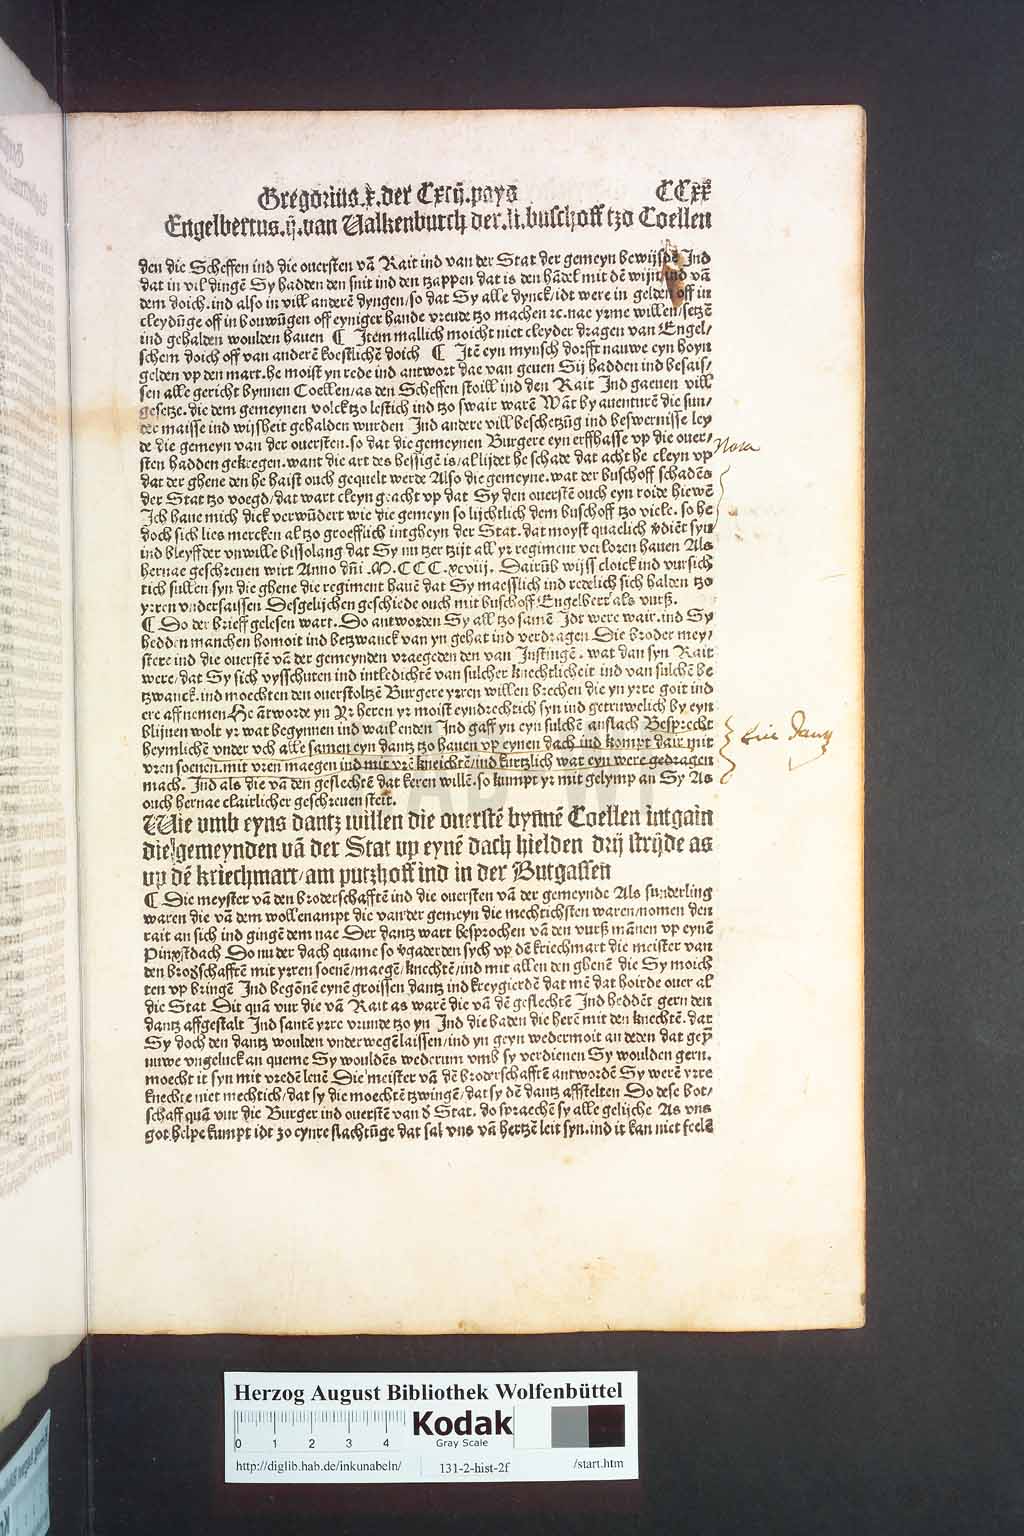 Gregorius.x.der Cxcij.pays CCxx
Engelbertus.ij.van Ualkenburch der.li.buschoff tzo Coellen
den die Scheffen ind die ouersten vā Rait ind van der Stat der gemeyn bewijsdē Ind
dat in vil dingē Sy hadden den snit ind den tzappen dat is den hādel mit dē wijn, ind vā
dem doich.ind also in vill anderē dyngen/so dat Sy alle dynck/idt were in gelden off in
cleydūge off in bouwūgen off eyniger hande vreude tzo machen ꝛc.nae yrme willen/setzē
ind gehalden woulden hauen ¶ Item mallich moicht niet cleyder dragen van Engel/
schem doich off van anderē koestlichē doich ¶ Itē eyn mynsch dorfft nauwe eyn hoyn
gelden vp den mart.he moist yn rede ind antwort dae van geuen Sij hadden ind besais/
sen alle gericht bynnen Coellen/as den Scheffen stoill ind den Rait Ind gaeuen vill
gesetze.die dem gemeynen volck tzo lestich ind tzo swair warē Wāt by auenturē die sun/
der maisse ind wijsheit gehalden wurden Ind andere vill beschetzūg ind beswernisse ley
de die gemeyn van der ouersten.so dat die gemeynen Burgere eyn erffhasse vp die ouer/
sten hadden gekregen.want die art des hessigē is/al lijdet he schade dat acht he cleyn vp
dat der ghene den he haist ouch gequelt werde Also die gemeyne.wat der buschoff schadēs
der Stat tzo voegd/dat wart cleyn geacht vp dat Sy den ouerstē ouch eyn roide hiewē
Ich haue mich dick verwūdert wie die gemeyn so lichtlich dem buschoff tzo vielē. so he
doch sich lies mercken al tzo groefflich intgheyn der Stat.dat moyst quaelich v̄diēt syn
ind bleyff der vnwille bissolang dat Sy nu tzer tzijt all yr regiment verloren hauen Als
hernae geschreuen wirt Anno dn̄i .M.CCCC.xcviij. Dairūb wijss cloick ind vursich
tich sullen syn die ghene die regiment hauē dat Sy maesslich ind redelich sich halden tzo
yrren vndersaissen Desgelijchen geschiede ouch mit buschoff Engelbert als vurß.
¶ Do der brieff gelesen wart. Do antworden Sy all tzo samē Idt were wair. ind Sy
hedden manchen homoit ind betzwanck van yn gehat ind verdragen Die broder mey/
stere ind die ouerstē vā der gemeynden vraegeden den van Justingē. wat dan syn Rait
were/dat Sy sich vysschuten ind intledichtē van sulcher knechtlicheit ind van sulchē be
tzwanck.ind moechten den ouerstoltzē Burgere yrren willen brechen die yn yrre goit ind
ere affnemen He ātworde yn Yr heren yr moist eyndrechtich syn ind getruwelich by eyn
blijuen wolt yr wat begynnen ind wail enden Ind gaff yn eyn sulchē anslach Besprecht
heymlichen vnder vch alle samen eyn dantz tzo hauen vp eynen dach ind kompt dair mit
vren soenen.mit vren maegen ind mit vrē kneichtē/ind kurtzlich wat eyn were gedragen
mach. Ind als die vā den geslechtē dat keren willē.so kumpt yr mit gelymp an Sy As
ouch hernae clairlicher geschreuen steit.
Wie vmb eyns dantz willen die ouerstē bynnē Coellen intgain
die gemeynden vā der Stat vp eynē dach hielden drij strijde as
vp dē kriechmart/am putzhoff ind in der Butgassen
¶ Die meyster vā den broderschafftē ind die ouersten vā der gemeynde Als sunderling
waren die vā dem wollenampt die van der gemeyn die mechtichsten waren/nomen den
rait an sich ind gingē dem nae Der dantz wart besprochen vā den vurß mānen vp eynē
Pinxstdach Do nu der dach quame so v̄gaderden sych vp dē kriechmart die meister van
den brod̄schafftē mit yrren soenē/maegē/knechtē/ind mit allen den ghenē die Sy moich
ten vp bringē Ind begēnē eynē groissen dantz ind kreygierdē dat mē dat hoirde ouer al
die Stat Dit quā vur die vā Rait as warē die vā dē geslechtē Ind heddēt gern den
dantz affgestalt Ind santē yrre vrunde tzo yn Ind die baden die herē mit den knechtē.dat
Sy doch den dantz woulden vnderwegē laissen/ind yn geyn wedermoit an deden dat geyn
nuwe vngeluck an queme Sy wouldēs wederum vmb sy verdienen Sy woulden gern.
moecht it syn mit vredē leuē Die meister vā dē broderschafftē antwordē Sy werē yrre
knechte niet mechtich/dat sy die moechtē tzwingē/dat sy dē dantz affstelten Do dese bot/
schaff quā vur die Burger ind ouerstē van d̄ Stat. do spraechē sy alle gelijche As vns
got helpe kumpt idt zo eynre slachtūge dat sal vns vā hertzē leit syn.ind it kan niet feelē
Nota
Ein Dantz
Herzog August Bibliothek Wolfenbüttel
0 1 2 3 4
Kodak
Gray Scale
http://diglib.hab.de/inkunabeln/ 131-2-hist-2f /start.htm